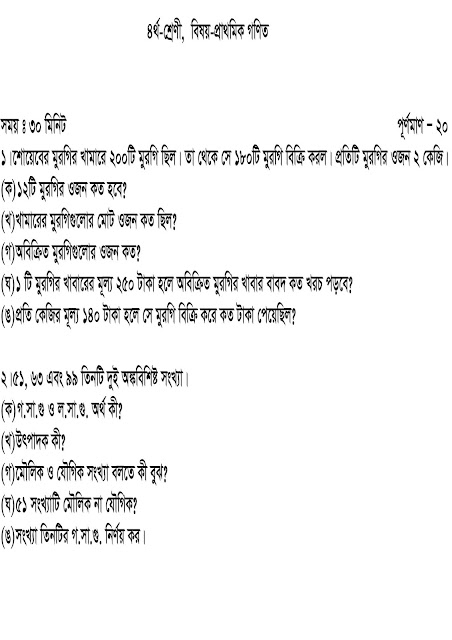 ৪র্থ-শ্রেণী, বিষয়-প্রাথমিক গণিত
সময় ঃ ৩০ মিনিট পূর্ণমাণ – ২০
১।শোয়েবের মুরগির খামারে ২০০টি মুরগি ছিল। তা থেকে সে ১৮০টি মুরগি বিক্রি করল। প্রতিটি মুরগির ওজন ২ কেজি।
(ক)১২টি মুরগির ওজন কত হবে?
(খ)খামারের মুরগিগুলোর মোট ওজন কত ছিল?
(গ)অবিক্রিত মুরগিগুলোর ওজন কত?
(ঘ)১ টি মুরগির খাবারের মূল্য ২৫০ টাকা হলে অবিক্রিত মুরগির খাবার বাবদ কত খরচ পড়বে?
(ঙ)প্রতি কেজির মূল্য ১৪০ টাকা হলে সে মুরগি বিক্রি করে কত টাকা পেয়েছিল?
২।৫১, ৬৩ এবং ৯৯ তিনটি দুই অঙ্কবিশিষ্ট সংখ্যা।
(ক)গ.সা.গু ও ল.সা.গু. অর্থ কী?
(খ)উৎপাদক কী?
(গ)মৌলিক ও যৌগিক সংখ্যা বলতে কী বুঝ?
(ঘ)৫১ সংখ্যাটি মৌলিক না যৌগিক?
(ঙ)সংখ্যা তিনটির গ.সা.গু. নির্ণয় কর।